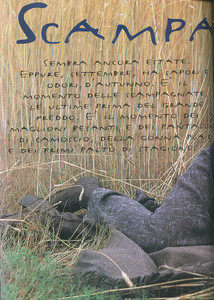 SCAMPA
SEMBRA ANCORA ESTATE.
EPPURE, SETTEMBRE, HA SAPORI E
ODORI D'AUTUNNO. E'
MOMENTO DELLE SCAMPAGNATE.
LE ULTIME PRIMA DEL GRANDE
FREDDO. E' IL MOMENTO DEI
MAGLIONI PESANTI, E DEI PANTAL
DI CAMOSCIO, DELLA GONNA
E DEI PRIMI PALTÒ DI STAGIONE.